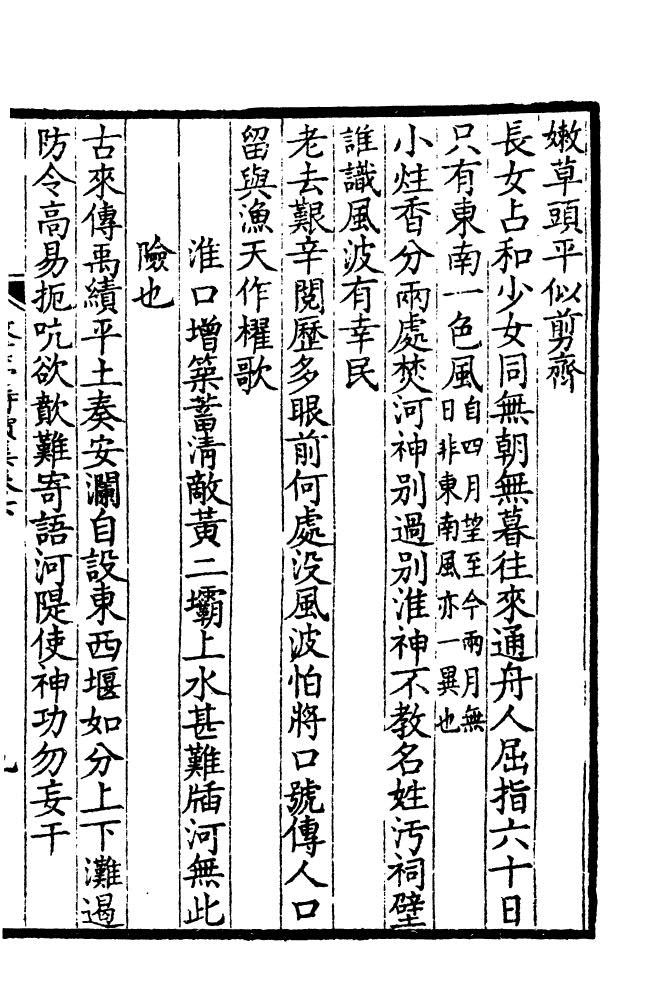 嫩草頭平似剪齊
長女占和少女同無朝無暮往來通舟人屈指六十日
只有東南一色風自四月望至今兩月無
日非東南風亦一異也
小炷香分兩處焚河神别過别淮神不教名姓汚祠壁
誰識風波有幸民
老去艱辛閱歷多眼前何處没風波怕將口號傳人口
留與漁天作櫂歌
淮口增築蓄淸敵黃二壩上水甚難牐河無此
險也
古來傳禹績平土奏安瀾自設東西堰如分上下灘遏
防令高易扼吭欲歕難寄語河隄使神功勿妄干